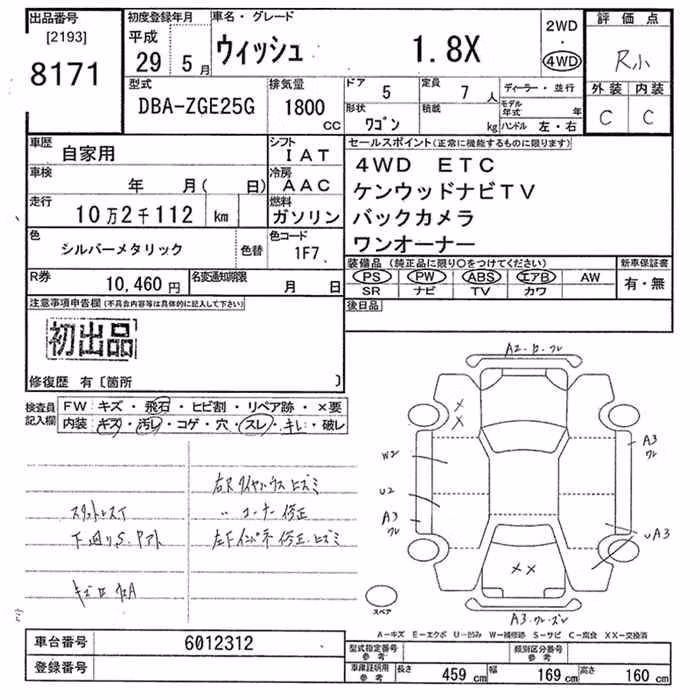 出品番号
[2193]
8171
初度登録年月
平成
29 5月
車名・グレード
ウィッシュ 1.8X
2WD
4WD
評価点
R小
外装 内装
C C
型式
DBA-ZGE25G
排気量
1800
CC
ドア 5
定員 7人
形状 ワゴン
積載 kg
ディーラー・並行
モデル年式 年
ハンドル 左・右
車歴
自家用
シフト
IAT
車検 年 月( 日)
冷房
AAC
走行
10万2千112 km
燃料
ガソリン
色
シルバーメタリック
色替
色コード
1F7
R券
10,460円
名変通知期限
月 日
セールスポイント(正常に機能するものに限ります)
4WD ETC
ケンウッドナビTV
バックカメラ
ワンオーナー
装備品(純正品に限り○をつけてください)
PS PW ABS エアB AW
SR ナビ TV カワ
新車保証書
有・無
後日品
注意事項申告欄(不具合内容等は具体的に記入して下さい)
初出品
修復歴 有〔箇所 〕
検査員記入欄
FW:キズ・飛石・ヒビ割・リペア跡・×要
内装:キズ・汚レ・コゲ・穴・スレ・キレ・破レ
スタットレスT
下回りS.
右R タイヤハウス ヒズミ
〃 コーナー 修正
左F インパネ 修正.ヒズミ
A2.B.ワレ
W2
U2
A3
ワレ
A3
ワレ
UA3
A3.ワレ.ズレ
スペア
A-キズ E-エクボ U-凹み W-補修跡 S-サビ C-腐食 XX-交換済
車台番号 6012312
登録番号
型式指定番号
参考
類別区分番号
参考
車庫証明用
参考
長さ 459cm 幅 169cm 高さ 160cm